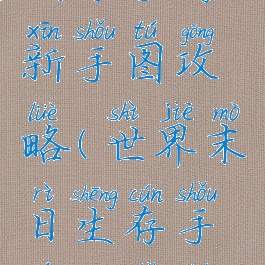 xīn shǒu tú gōng
新手图攻
lüè shì jiè mò
略(世界末
rì shēng cún shǒu
日生存手